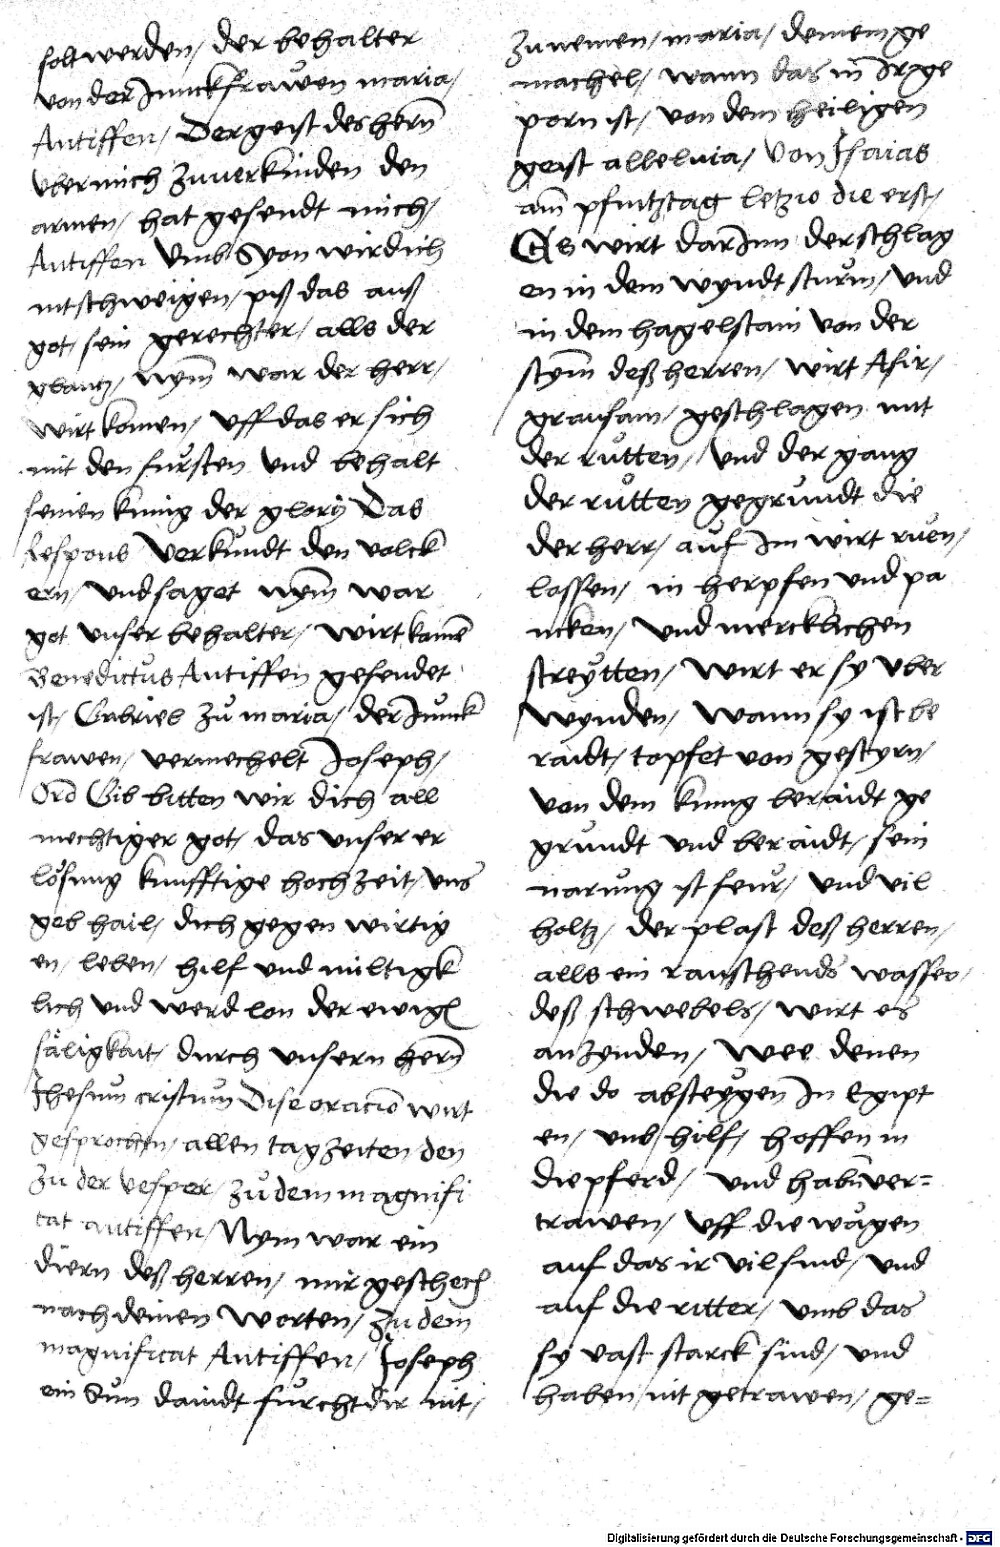 solt werden, der behalter
von der Junckfrawen maria,
Antiffen, Der geist des hern̄
uber mich zuuerkinden den
armen, hat gesendt mich,
Antiffen Vmb Syon wird ich
nit schweigen, piß das auß
got, sein gerechter, alls der
glantz, Nym̄ war der herr,
wirt komen, vff das er sich
mit den fürsten vnd behalt
seinen kinig der glory Das
Respons Verkündt den volck
ern, vnd saget nym̄ war
got vnser behalter, wirt komē
Benedictus Antiffen gesendet
ist, Gabriel zů maria, der Junck
frawen, vermechelt Joseph,
Ord Gib bitten wir dich all
mechtiger got, das vnser er
lösung kunfftige hochzeit, vns
geb hail, dich gegen wirtig
en, leben, hilf vnd miltigk
lich vnd werd lon der ewigl
säligkait, durch vnsern hern̄
Jhesum cristum Dise oracio wirt
gesprochen, allen tagzeiten den
zu der vesper, zů dem magnifi
cat antiffen, Nym war ein
diern deß herren, mir geschech
nach deinen worten, zu dem
magnificat Antiffen, Joseph
ein Sun dauidt fürcht dir nit,
zu nemen, maria, deinem ge
machel, wann das in Ir ge
porn ist, von dem heiligen
geist alleluia, Von Jsaias
am̄ pfintztag letzio die erst,
Es wirt dar Jnn der schlag
en in dem wyndt sturm, vnd
in dem hagelstain von der
stym̄ deß herren, wirt Asir,
grausam, geschlagen mit
der růtten, vnd der gang
der růtten gegründt die
der herr, auf Jm wirt ruen,
lassen, in herpfen vnd pa
ucken, vnd mercklichen
streytten, wirt er sy vber
wynden, Wann sy ist be
raidt, topfet von gestyrn,
von dem kunig beraidt ge
grundt vnd beraidt, sein
narung ist feur, vnd vil
holtz, der plast deß herren,
alls ein rauschends wasser,
deß schwebels, wirt es
anzenden, Wee denen
die do absteygen Jn Egipt
en, vmb hilf, hoffen in
die pferd, vnd habn̄ ver=
trawen, vff die wägen
auf das ir vil sind, vnd
auf die ritter, vmb das
sy vast starck sind, vnd
haben nit getrawen, ge=
Digitalisierung gefördert durch die Deutsche Forschungsgemeinschaft - DFG